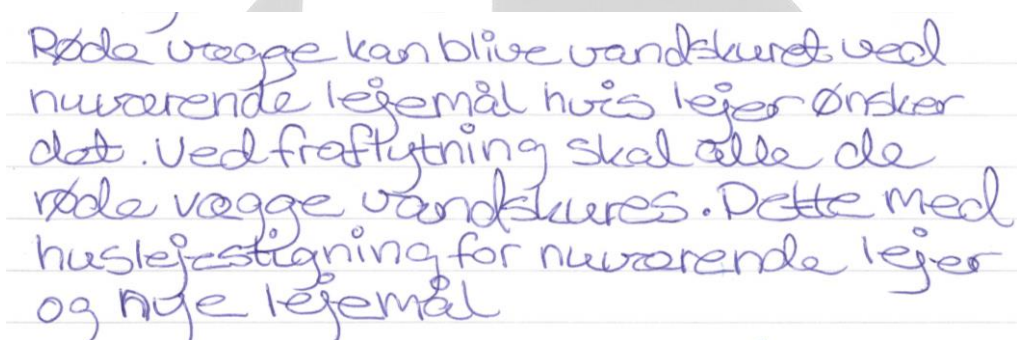 Røde vægge kan blive vandskuret ved
nuværende lejemål hvis lejer ønsker
det. Ved fraflytning skal alle de
røde vægge vandskures. Dette med
huslejestigning for nuværende lejer
og nye lejemål